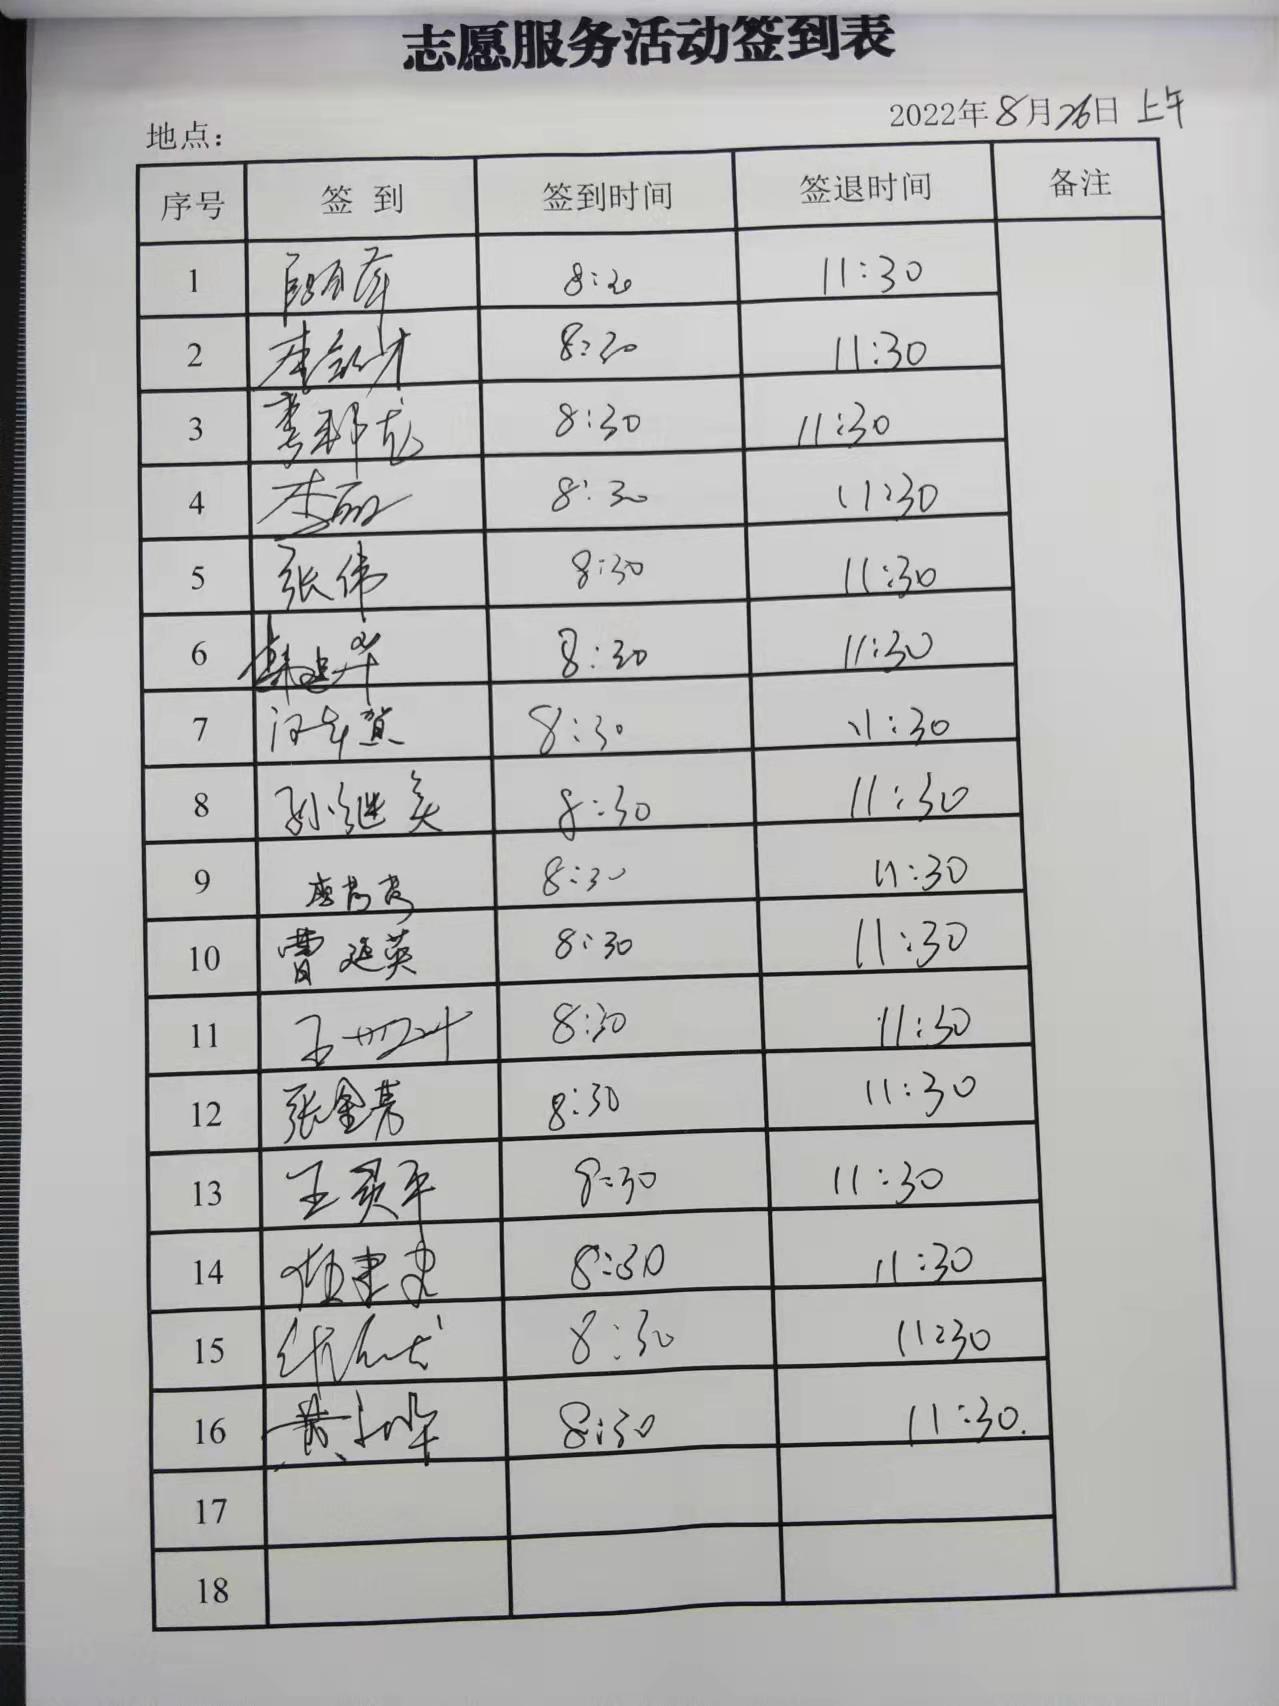 志愿服务活动签到表
2022年8月26日 上午
地点：
序号 签到 签到时间 签退时间 备注
1 8:30 11:30
2 8:30 11:30
3 8:30 11:30
4 李丽 8:30 11:30
5 张伟 8:30 11:30
6 8:30 11:30
7 8:30 11:30
8 孙继美 8:30 11:30
9 8:30 11:30
10 曹延英 8:30 11:30
11 8:30 11:30
12 张金芳 8:30 11:30
13 王灵平 8:30 11:30
14 8:30 11:30
15 8:30 11:30
16 8:30 11:30.
17
18